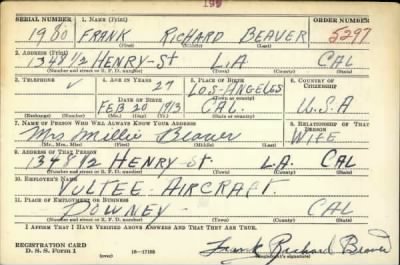 199
SERIAL NUMBER 1. NAME (Print) ORDER NUMBER
1980 FRANK RICHARD BEAVER 5297
(First) (Middle) (Last)
2. ADDRESS (Print)
1348 1/2 HENRY-St L.A CAL
(Number and street or R. F. D. number) (Town) (County) (State)
3. TELEPHONE 4. AGE IN YEARS 5. PLACE OF BIRTH 6. COUNTRY OF CITIZENSHIP
✓ 27 LOS-ANGELES
DATE OF BIRTH (Town or county)
FEB 20 1913 CAL. U.S.A
(Mo.) (Day) (Yr.) (State or country)
7. NAME OF PERSON WHO WILL ALWAYS KNOW YOUR ADDRESS 8. RELATIONSHIP OF THAT PERSON
Mrs Millie Beaver WIFE
(Mr., Mrs., Miss) (First) (Middle) (Last)
9. ADDRESS OF THAT PERSON
1348 1/2 HENRY St. L.A. CAL
(Number and street or R. F. D. number) (Town) (County) (State)
10. EMPLOYER'S NAME
VULTEE - AIRCRAFT.
11. PLACE OF EMPLOYMENT OR BUSINESS
DOWNEY- CAL
(Number and street or R. F. D. number) (Town) (County) (State)
I AFFIRM THAT I HAVE VERIFIED ABOVE ANSWERS AND THAT THEY ARE TRUE.
REGISTRATION CARD
D. S. S. Form 1 (over) 16-17105
Frank Richard Beaver
(Registrant's signature)